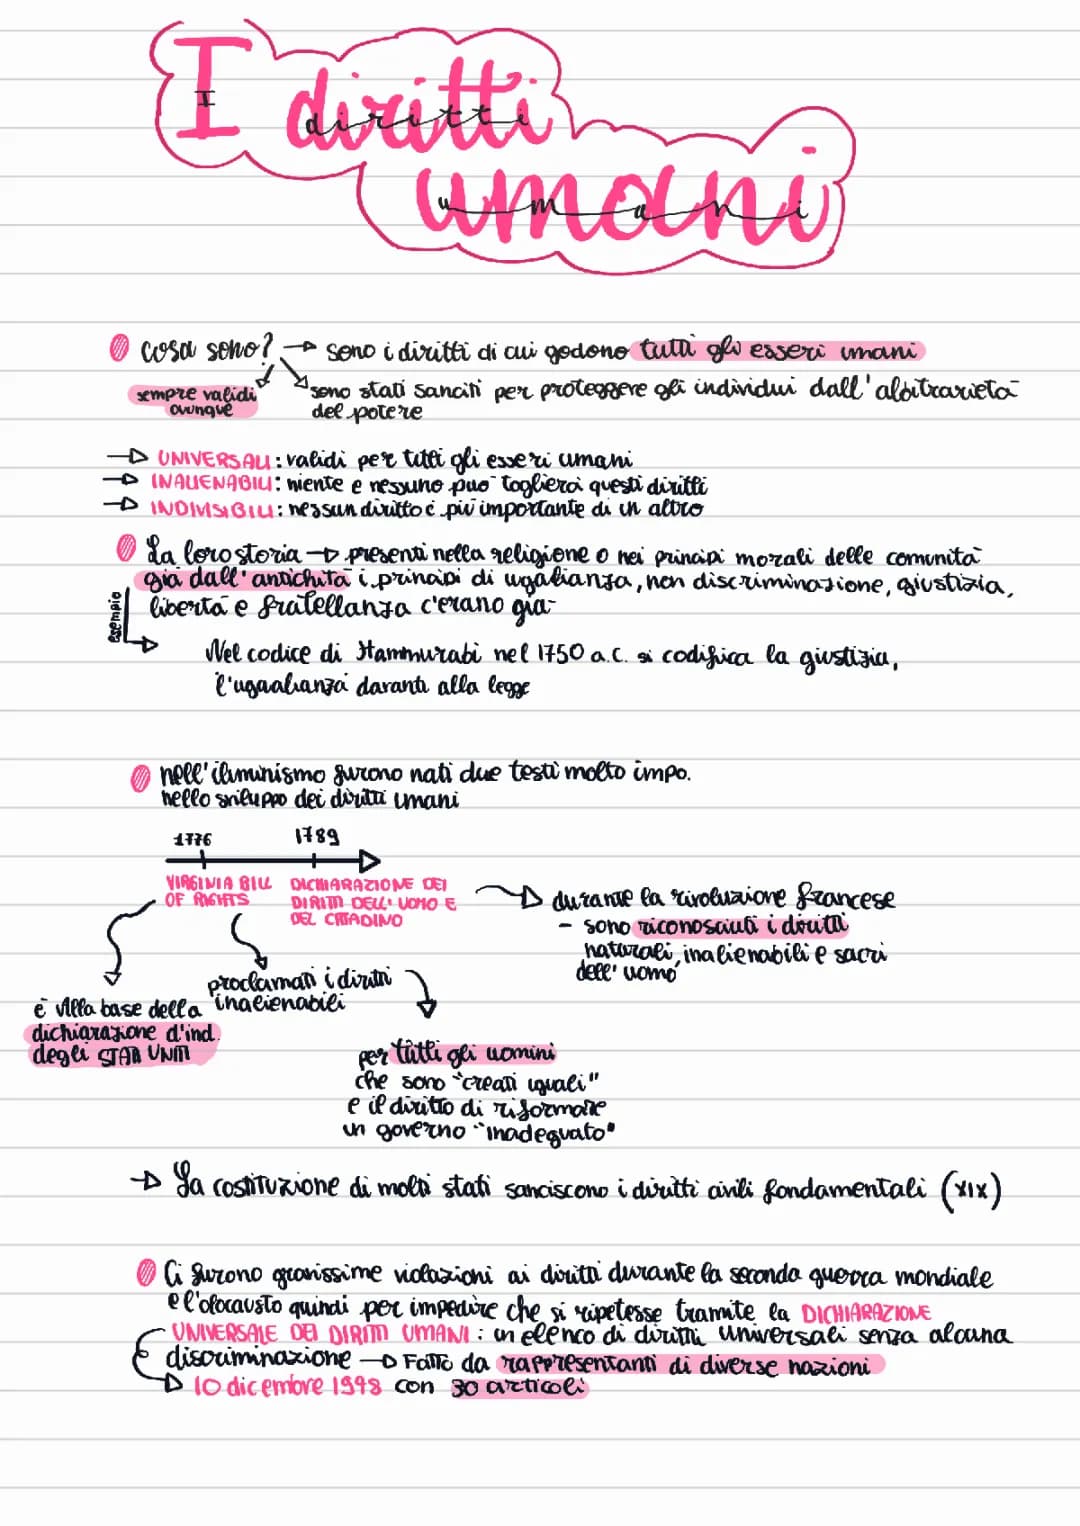 I diritti
umani
cosa sono? → sono i diritti di cui godono tutti gli esseri umani
sempre validi
ovunque
sono stati sanciti per proteggere gli individui dall'albitrarietà
del potere
→ UNIVERSALI: validi per tutti gli esseri umani
→ INALIENABILI: niente e nessuno può toglierci questi diritti
→ INDIVISIBILI: nessun diritto è più importante di un altro
La loro storia → presenti nella religione o nei principi morali delle comunità
già dall'antichità i principi di uguglianza, non discriminazione, giustizia,
libertà e fratellanza c'erano già
esempio
Nel codice di Hammurabi nel 1750 a.C. si codifica la giustizia,
l'uguaglianza davanti alla legge
nell'illuminismo furono nati due testi molto impo.
nello sviluppo dei diritti umani
1776 1789
VIRGINIA BILL
OF RIGHTS
DICHIARAZIONE DEI
DIRITTI DELL'UOMO E
DEL CITTADINO
→ durante la rivoluzione francese
- sono riconosciuti i diritti
naturali, inalienabili e sacri
dell'uomo
proclamati i diritti
inalienabili
è alla base della
dichiarazione d'ind.
degli STATI UNITI
per tutti gli uomini
che sono "creati uguali"
e il diritto di riformare
un governo "inadeguato"
→ La costituzione di molti stati sanciscono i diritti civili fondamentali (XIX)
Ci furono gravissime violazioni ai diritti durante la seconda guerra mondiale
e l'olocausto quindi per impedire che si ripetesse tramite la DICHIARAZIONE
UNIVERSALE DEI DIRITTI UMANI: un elenco di diritti universali senza alcuna
discriminazione → Fatto da rappresentanti di diverse nazioni
→ 10 dicembre 1998 con 30 articoli